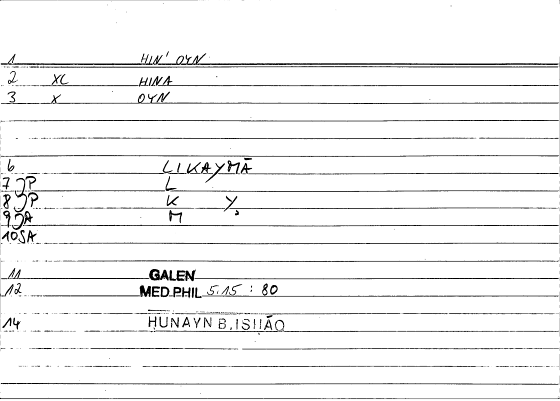 1 HIN' OYN
2 XC HINA
3 X OYN
6 LIKAYMĀ
7 JP L
8 JP K Y.
9 JA M
10 SA
11 GALEN
12 MED.PHIL 5.15 : 80
14 HUNAYN B.ISHĀQ